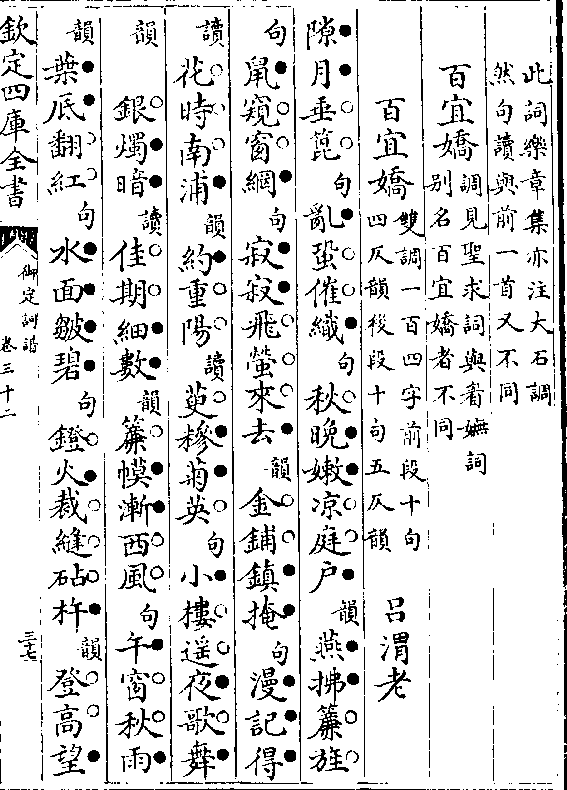 此詞樂章集亦注大石調
然句讀與前一首又不同
百宜嬌調見聖求詞與眉嫵詞
別名百宜嬌者不同
百宜嬌雙調一百四字前段十句
四仄韻後段十句五仄韻
呂渭老
隙月垂篦句亂蛩催織句秋晚嫩凉庭戶韻燕拂簾旌
句鼠窺窗網句寂寂飛螢來去韻金鋪鎮掩句漫記得
讀花時南浦韻約重陽讀萸糝菊英句小樓遥夜歌舞
韻銀燭暗讀佳期細數韻簾幙漸西風句午窗秋雨
韻葉底翻紅句水面皺碧句鐙火裁縫砧杵韻登高望
欽定四庫全書
御定詞譜
卷三十二
三七